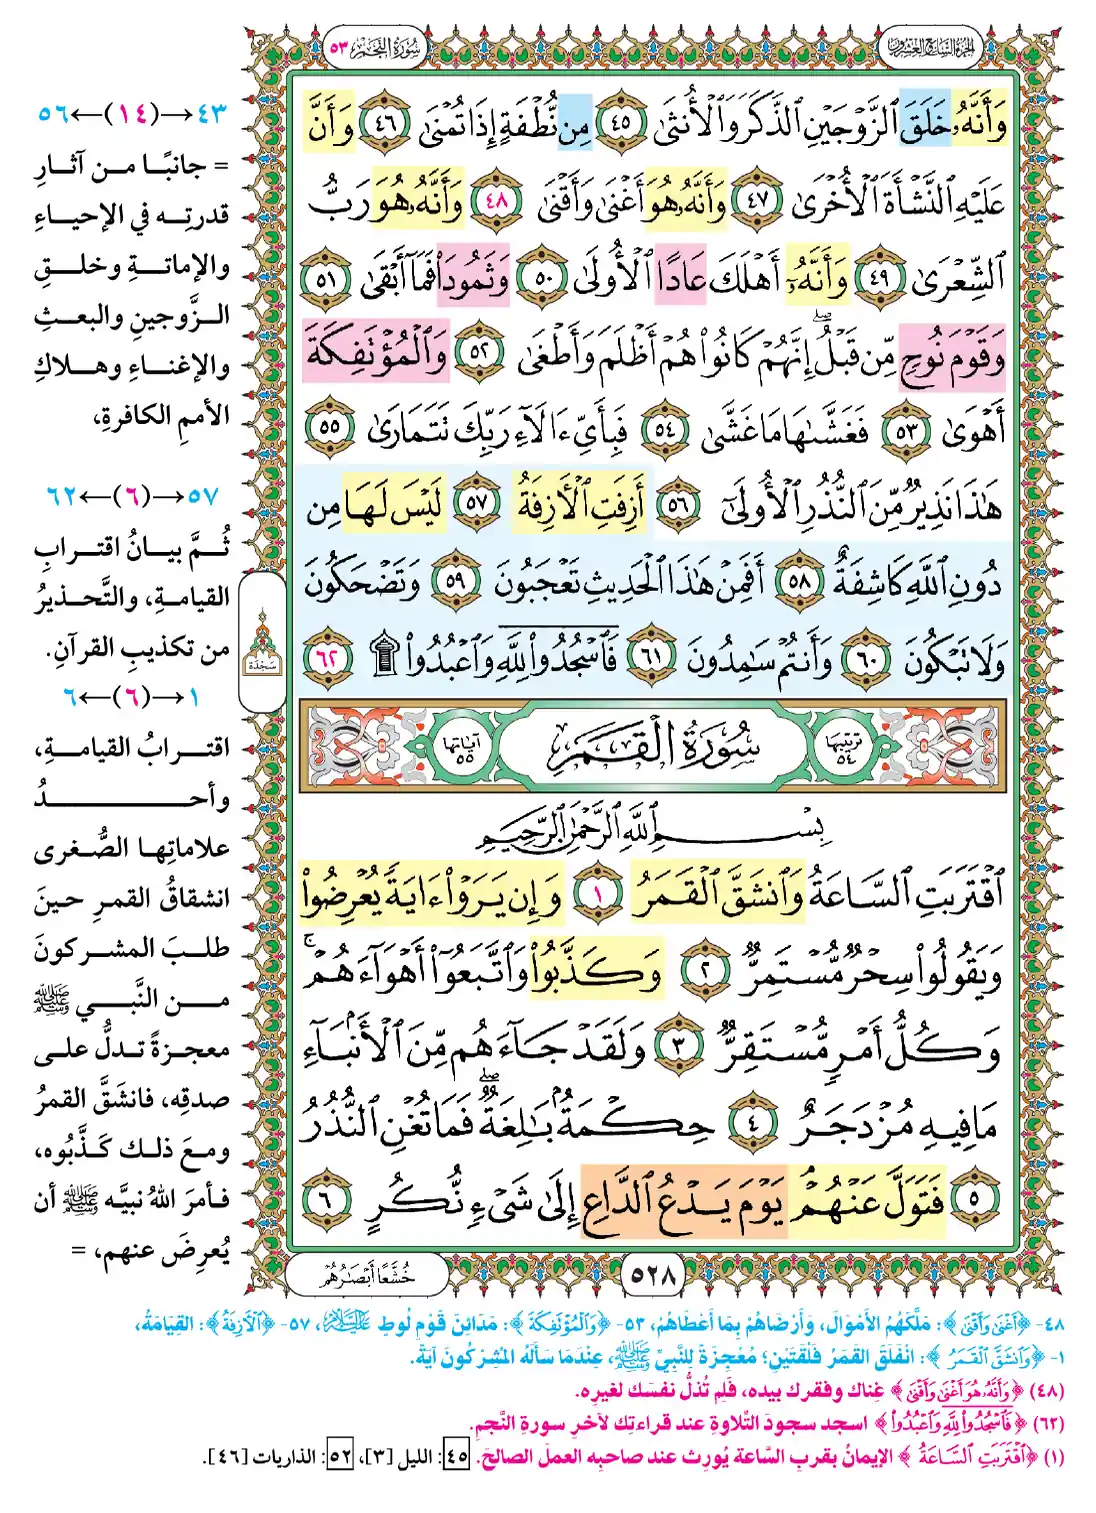 الجزء السابع والعشرون
سورة النجم ٥٣
وَأَنَّهُۥ خَلَقَ ٱلزَّوۡجَيۡنِ ٱلذَّكَرَ وَٱلۡأُنثَىٰ ٤٥ مِن نُّطۡفَةٍ إِذَا تُمۡنَىٰ ٤٦ وَأَنَّ
عَلَيۡهِ ٱلنَّشۡأَةَ ٱلۡأُخۡرَىٰ ٤٧ وَأَنَّهُۥ هُوَ أَغۡنَىٰ وَأَقۡنَىٰ ٤٨ وَأَنَّهُۥ هُوَ رَبُّ
ٱلشِّعۡرَىٰ ٤٩ وَأَنَّهُۥٓ أَهۡلَكَ عَادًا ٱلۡأُولَىٰ ٥٠ وَثَمُودَاْ فَمَآ أَبۡقَىٰ ٥١
وَقَوۡمَ نُوحٖ مِّن قَبۡلُۖ إِنَّهُمۡ كَانُواْ هُمۡ أَظۡلَمَ وَأَطۡغَىٰ ٥٢ وَٱلۡمُؤۡتَفِكَةَ
أَهۡوَىٰ ٥٣ فَغَشَّىٰهَا مَا غَشَّىٰ ٥٤ فَبِأَيِّ ءَالَآءِ رَبِّكَ تَتَمَارَىٰ ٥٥
هَٰذَا نَذِيرٞ مِّنَ ٱلنُّذُرِ ٱلۡأُولَىٰٓ ٥٦ أَزِفَتِ ٱلۡأٓزِفَةُ ٥٧ لَيۡسَ لَهَا مِن
دُونِ ٱللَّهِ كَاشِفَةٌ ٥٨ أَفَمِنۡ هَٰذَا ٱلۡحَدِيثِ تَعۡجَبُونَ ٥٩ وَتَضۡحَكُونَ
وَلَا تَبۡكُونَ ٦٠ وَأَنتُمۡ سَٰمِدُونَ ٦١ فَٱسۡجُدُواْۤ لِلَّهِۤ وَٱعۡبُدُواْ ۩ ٦٢
ترتيبها ٥٤ سُورَةُ الْقَمَرِ آياتها ٥٥
بِسۡمِ ٱللَّهِ ٱلرَّحۡمَٰنِ ٱلرَّحِيمِ
ٱقۡتَرَبَتِ ٱلسَّاعَةُ وَٱنشَقَّ ٱلۡقَمَرُ ١ وَإِن يَرَوۡاْ ءَايَةٗ يُعۡرِضُواْ
وَيَقُولُواْ سِحۡرٞ مُّسۡتَمِرّٞ ٢ وَكَذَّبُواْ وَٱتَّبَعُوٓاْ أَهۡوَآءَهُمۡۚ
وَكُلُّ أَمۡرٖ مُّسۡتَقِرّٞ ٣ وَلَقَدۡ جَآءَهُم مِّنَ ٱلۡأَنۢبَآءِ
مَا فِيهِ مُزۡدَجَرٌ ٤ حِكۡمَةُۢ بَٰلِغَةٞۖ فَمَا تُغۡنِ ٱلنُّذُرُ
٥ فَتَوَلَّ عَنۡهُمۡۘ يَوۡمَ يَدۡعُ ٱلدَّاعِ إِلَىٰ شَيۡءٖ نُّكُرٍ ٦
خُشَّعًا أَبۡصَٰرُهُمۡ
٥٢٨
سَجدَة
٤٣→(١٤)←٥٦
= جانبًا من آثارِ
قدرتِه في الإحياءِ
والإماتةِ وخلقِ
الزَّوجينِ والبعثِ
والإغناءِ وهلاكِ
الأممِ الكافرةِ،
٥٧→(٦)←٦٢
ثُمَّ بيانُ اقترابِ
القيامةِ، والتَّحذيرُ
من تكذيبِ القرآنِ.
١→(٦)←٦
اقترابُ القيامةِ،
وأحدُ
علاماتِها الصُّغرى
انشقاقُ القمرِ حينَ
طلبَ المشركونَ
من النَّبي ﷺ
معجزةً تدلُّ على
صدقِه، فانشَقَّ القمرُ
ومعَ ذلك كَذَّبُوه،
فأمرَ اللهُ نبيَّه ﷺ أن
يُعرِضَ عنهم، =
٤٨- ﴿أَغْنَىٰ وَأَقْنَىٰ﴾: مَلَّكَهُمُ الأَمْوَالَ، وَأَرْضَاهُمْ بِمَا أَعْطَاهُمْ، ٥٣- ﴿وَٱلْمُؤْتَفِكَةَ﴾: مَدَائِنَ قَوْمِ لُوطٍ عَلَيْهِ السَّلَامُ، ٥٧- ﴿ٱلْآزِفَةُ﴾: القِيَامَةُ،
١- ﴿وَٱنشَقَّ ٱلْقَمَرُ﴾: انْفَلَقَ القَمَرُ فَلْقَتَيْنِ؛ مُعْجِزَةً لِلنَّبِيِّ ﷺ، عِنْدَمَا سَأَلَهُ المُشْرِكُونَ آيَةً.
(٤٨) ﴿وَأَنَّهُۥ هُوَ أَغْنَىٰ وَأَقْنَىٰ﴾ غِناك وفقرك بيده، فَلِم تُذلُّ نفسَك لغيرِه.
(٦٢) ﴿فَٱسْجُدُواْ لِلَّهِ وَٱعْبُدُواْ﴾ اسجد سجودَ التِّلاوةِ عند قراءتِك لآخرِ سورةِ النَّجمِ.
(١) ﴿ٱقْتَرَبَتِ ٱلسَّاعَةُ﴾ الإيمانُ بقربِ السَّاعة يُورِث عند صاحبِه العملَ الصالحَ. ٤٥: الليل [٣]، ٥٢: الذاريات [٤٦].